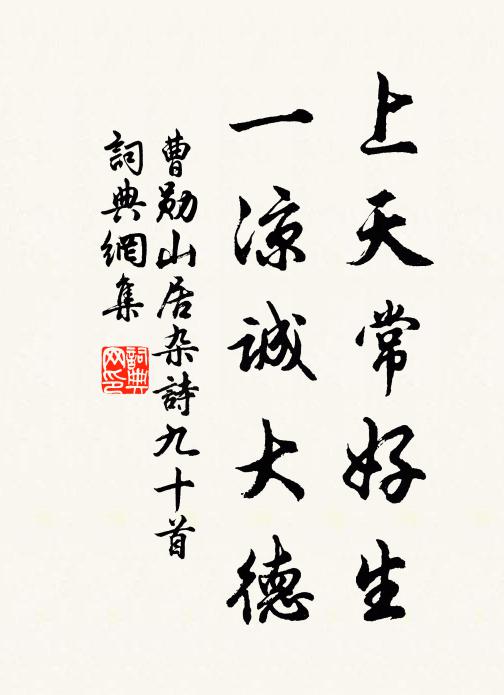 上天常好生
一凉誠大德
曹勋山居杂詩九十首
詞典網集
詞典網印